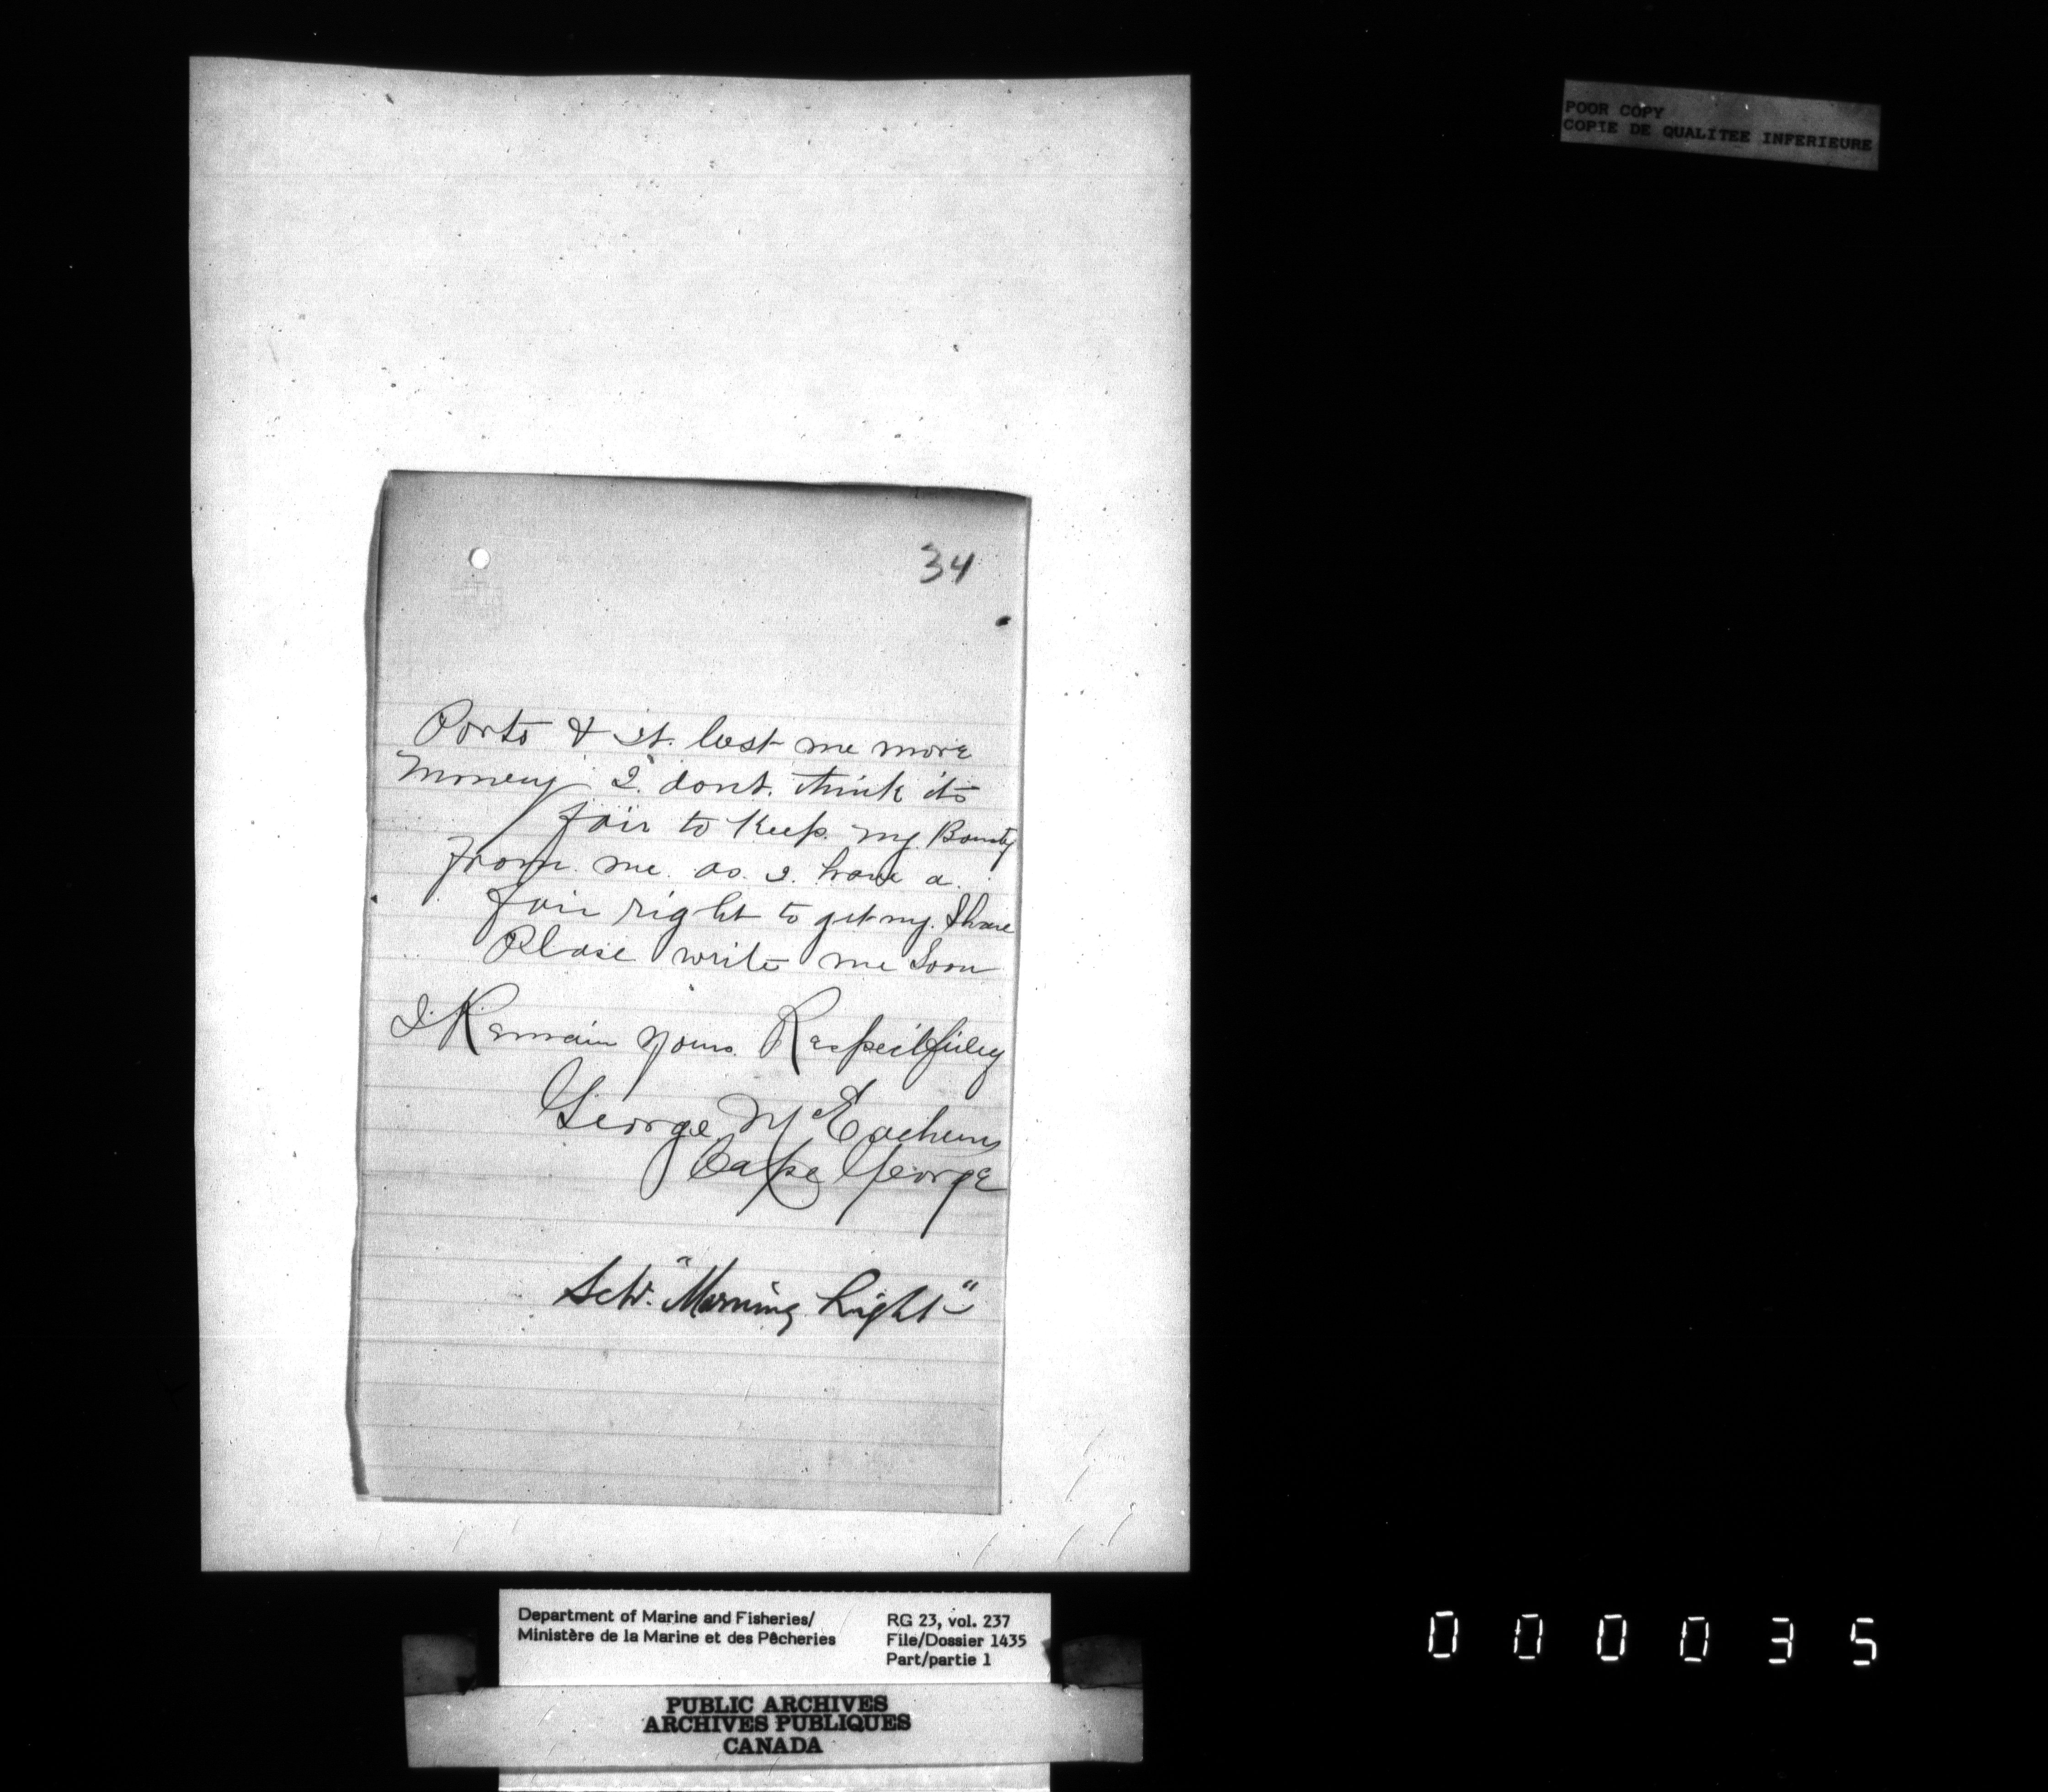 POOR COPY
COPIE DE QUALITEE INFERIEURE
34
Ports & it. lost me more
money I. dont. think its
fair to Keep. my. Bounty
from. me. as. I. have a.
fair right to get my. Share
Please write me Soon
I. Remain yours. Respectfully
George McEachern
Cape George
Schr. "Morning Light"
Department of Marine and Fisheries/
Ministère de la Marine et des Pêcheries
RG 23, vol. 237
File/Dossier 1435
Part/partie 1
PUBLIC ARCHIVES
ARCHIVES PUBLIQUES
CANADA
000035